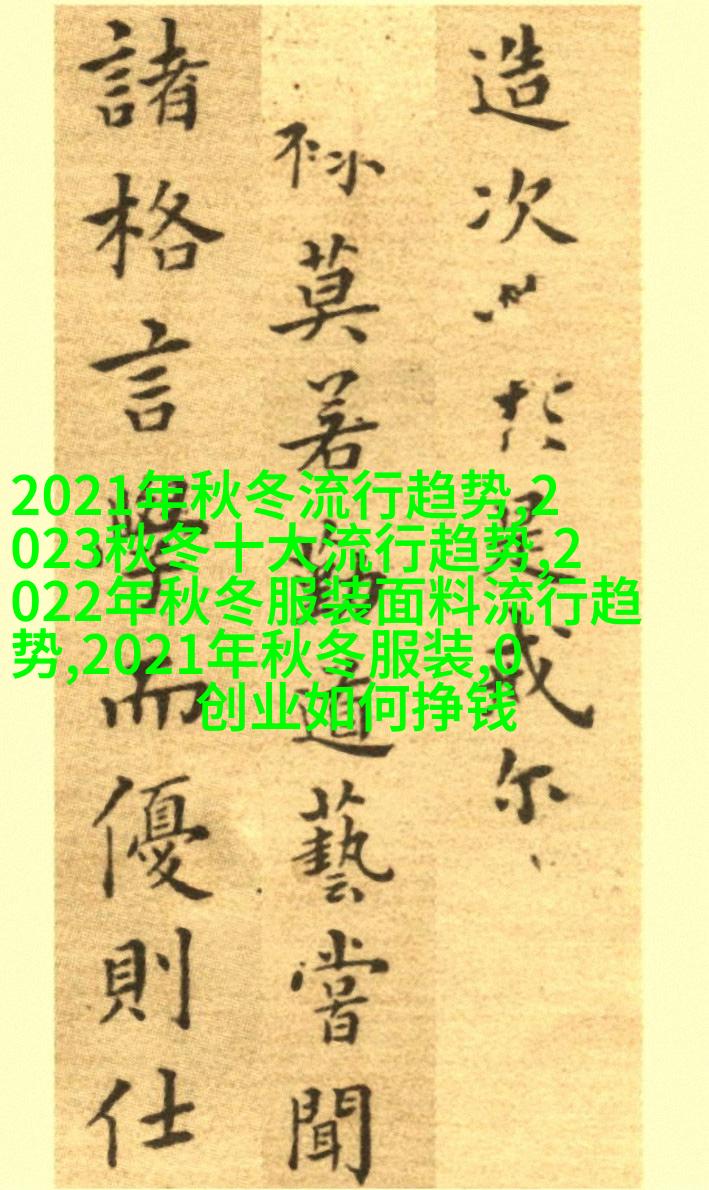 造次於是
莫若藝嘗聞
諸格言學而優則仕
2021年秋冬流行趋势,2
023秋冬十大流行趋势,2
022年秋冬服装面料流行趋
势,2021年秋冬服装,0
创业如何挣钱